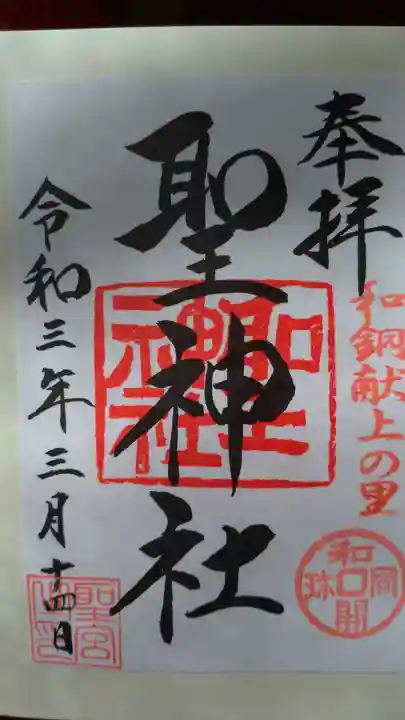 奉拝
和銅献上の里
和同開珎
聖神社
聖神社
令和三年三月十四日